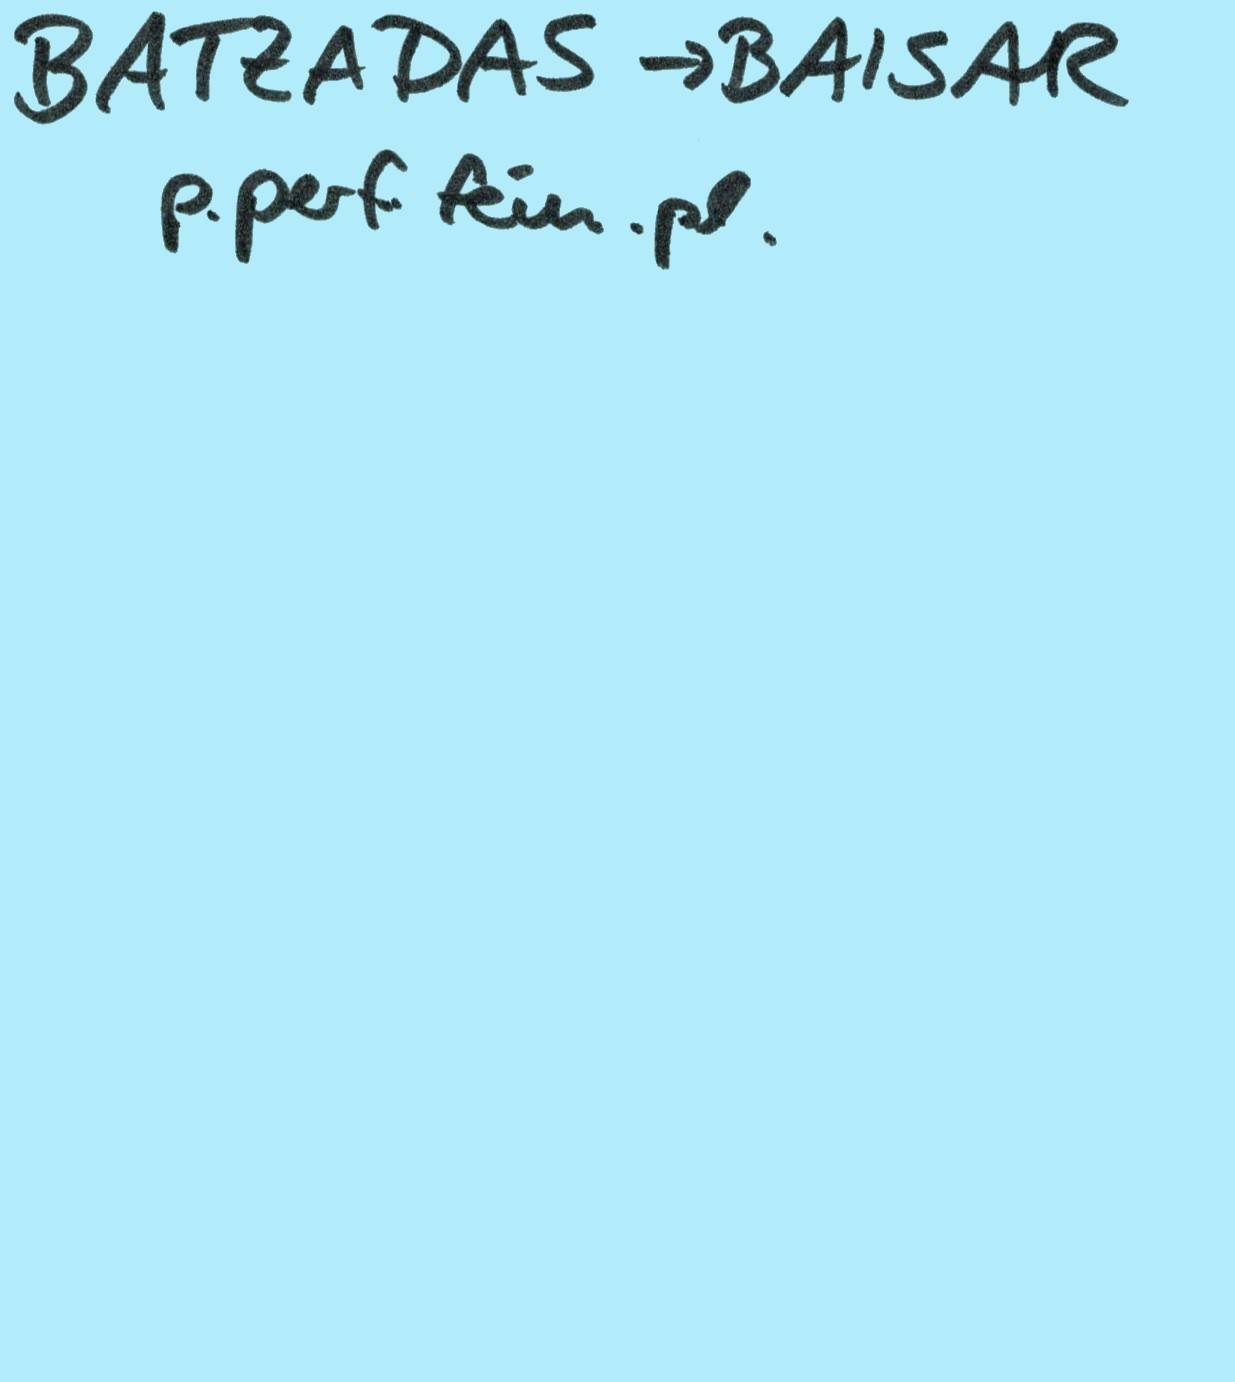 BATZADAS → BAISAR
p. perf. fém. pl.